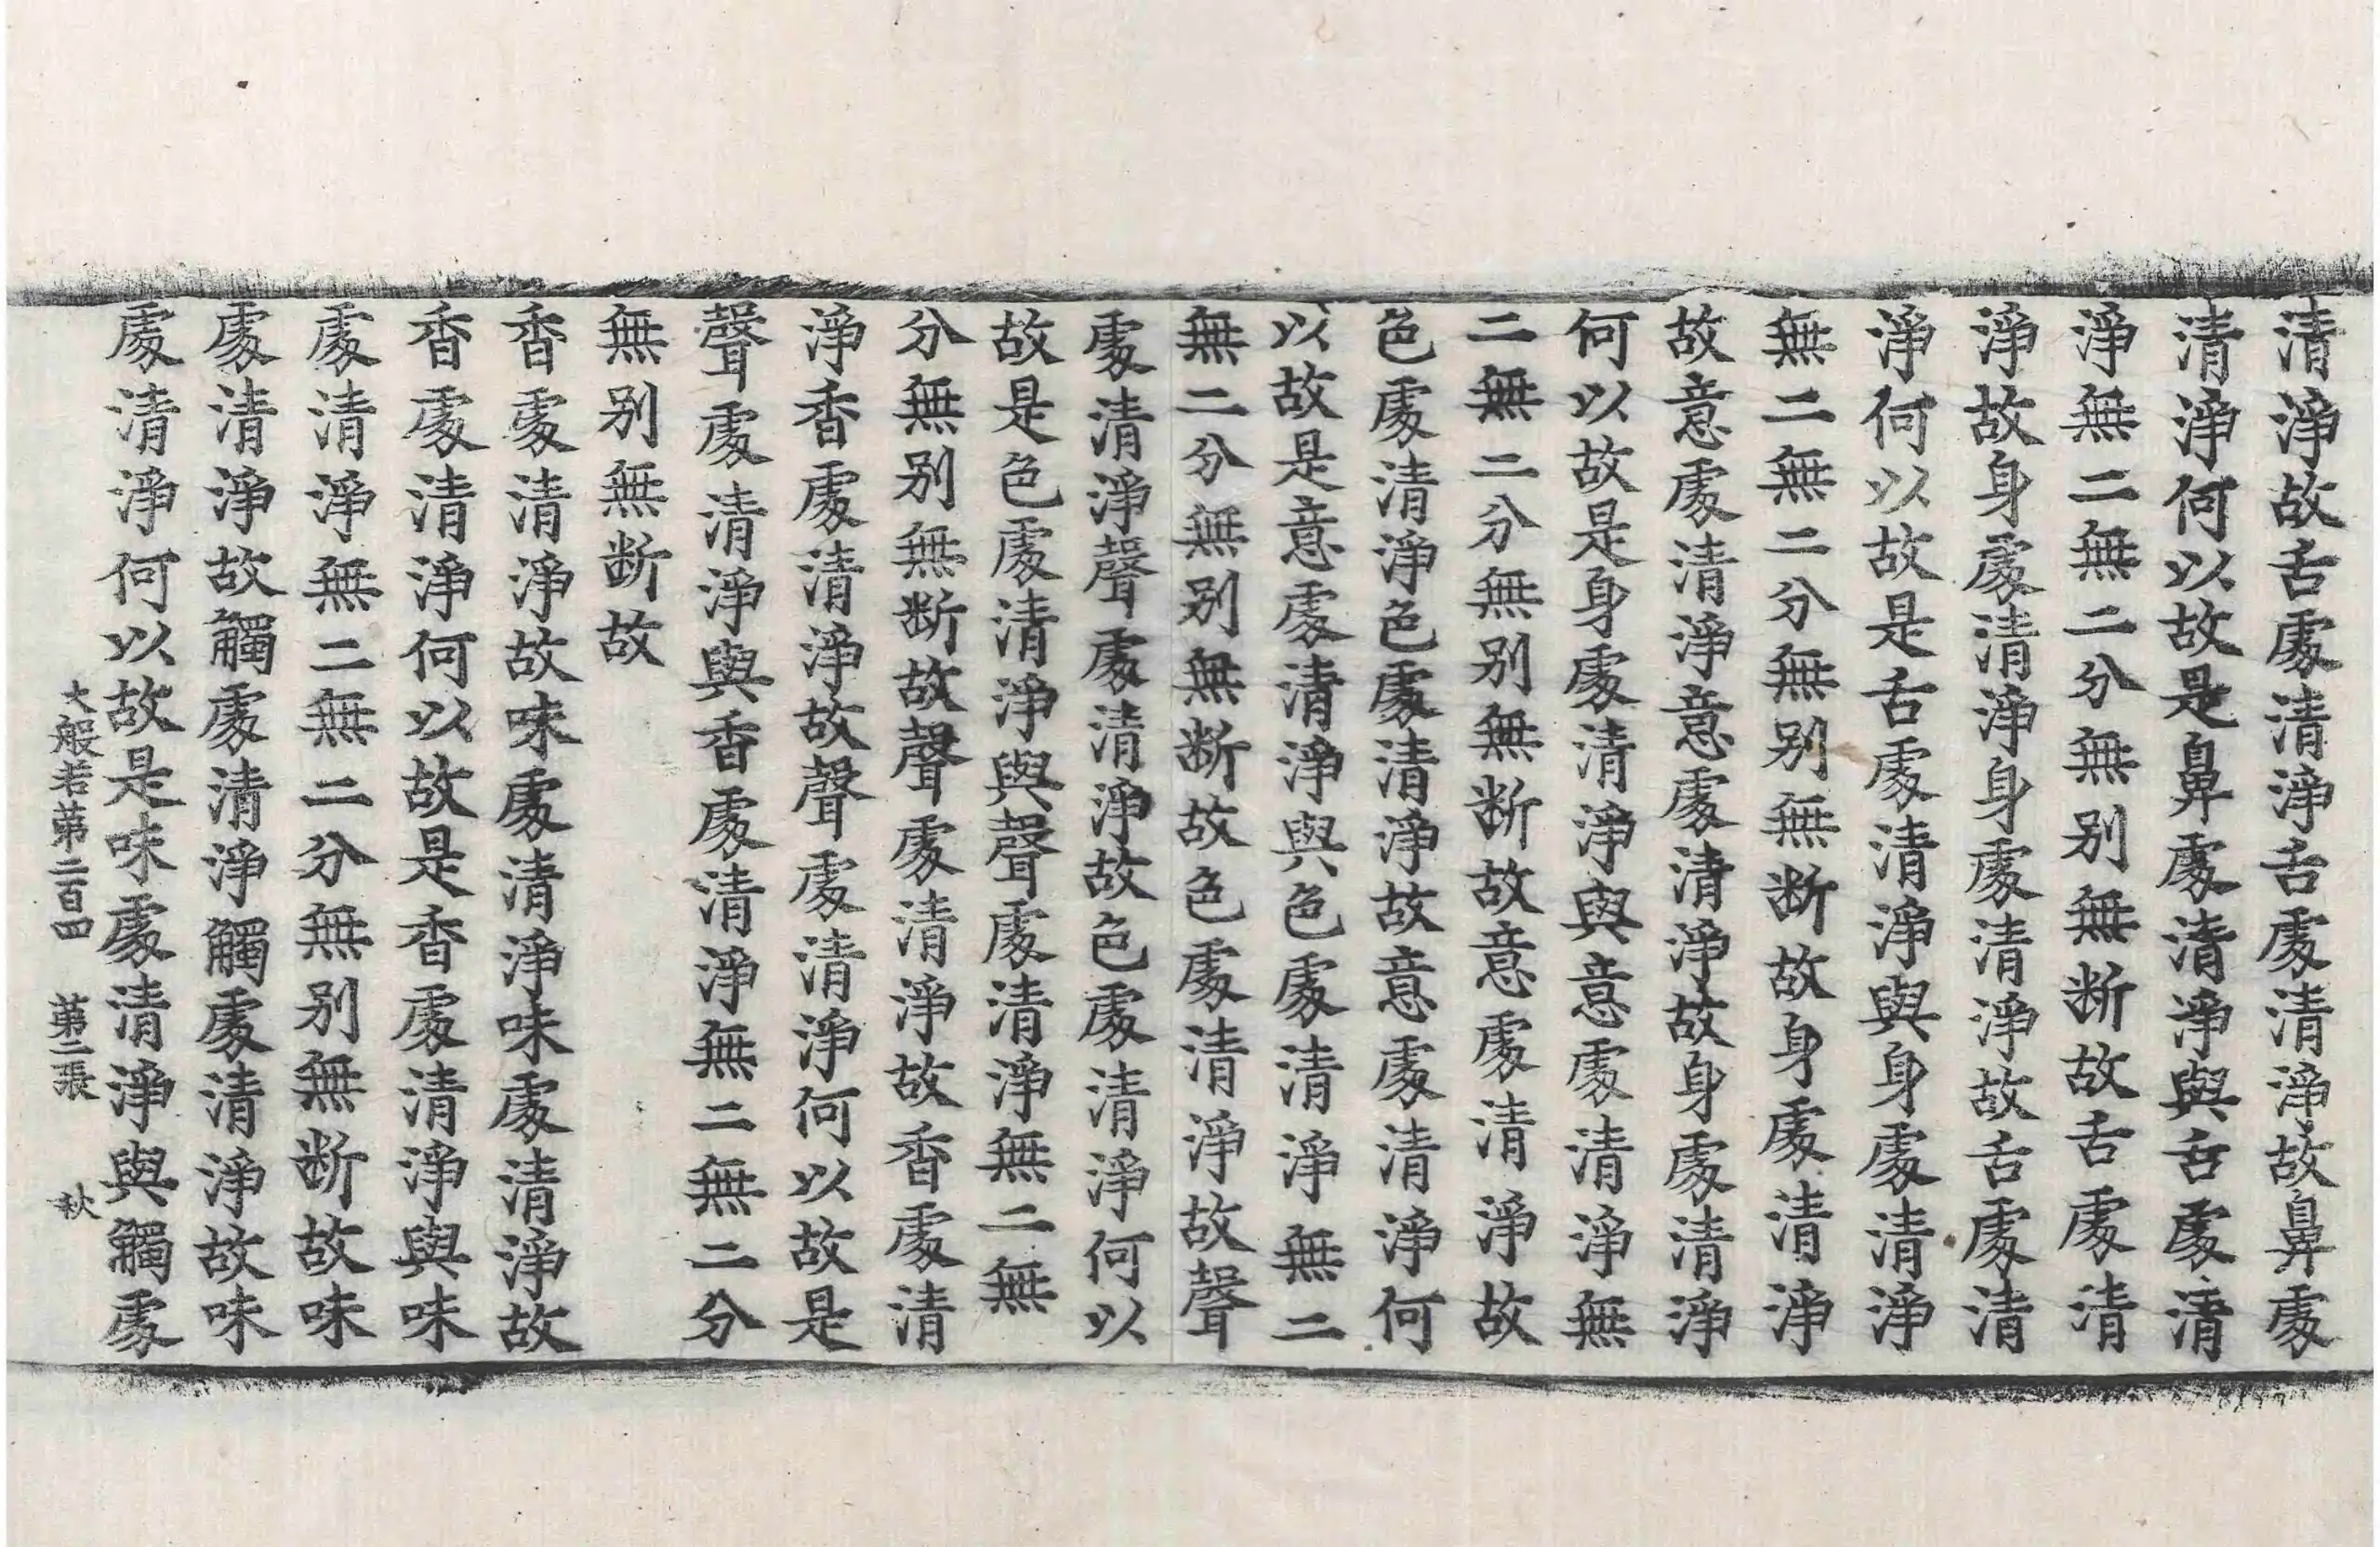 清淨故舌處清淨舌處清淨故鼻處
清淨何以故是鼻處清淨與舌處清
淨無二無二分無别無断故舌處清
淨故身處清淨身處清淨故舌處清
淨何以故是舌處清淨與身處清淨
無二無二分無别無断故身處清淨
故意處清淨意處清淨故身處清淨
何以故是身處清淨與意處清淨無
二無二分無别無断故意處清淨故
色處清淨色處清淨故意處清淨何
以故是意處清淨與色處清淨無二
無二分無别無断故色處清淨故聲
處清淨聲處清淨故色處清淨何以
故是色處清淨與聲處清淨無二無
分無别無断故聲處清淨故香處清
淨香處清淨故聲處清淨何以故是
聲處清淨與香處清淨無二無二分
無别無断故
香處清淨故味處清淨味處清淨故
香處清淨何以故是香處清淨與味
處清淨無二無二分無别無断故味
處清淨故觸處清淨觸處清淨故味
處清淨何以故是味處清淨與觸處
大般若苐二百四 苐二張 秋